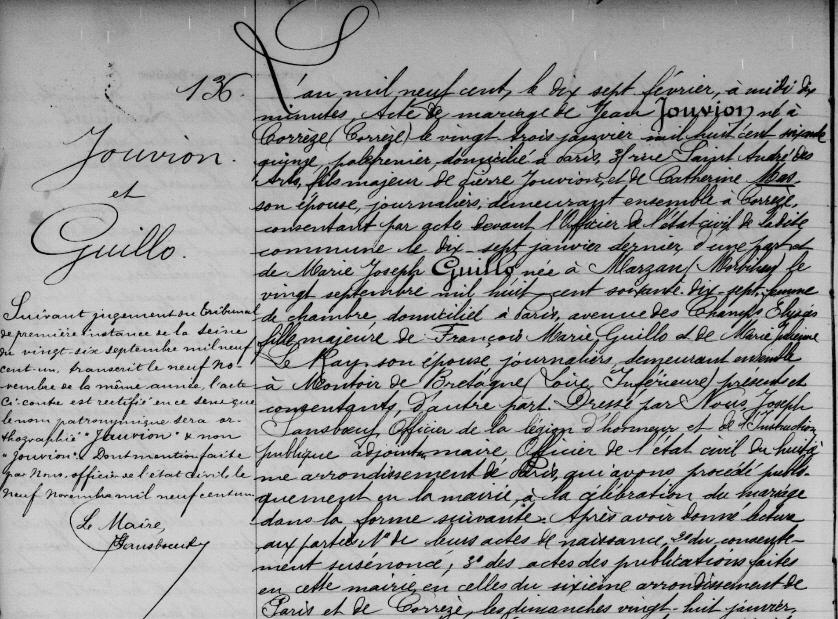 136.
Jouvion.
et
Guillo.
Suivant jugement du tribunal
de première instance de la Seine
du vingt-six septembre mil neuf
cent-un, transcrit le neuf no-
vembre de la même année, l'acte
ci-contre est rectifié en ce sens que
le nom patronymique sera or-
thographié "Jauvion" & non
"Jouvion". Dont mention faite
par Nous, officier de l'état civil le
neuf Novembre mil neuf cent un
Le Maire,
L'an mil neuf cent, le dix sept février, à midi dix
minutes, Acte de mariage de Jean Jouvion né à
Corrèze (Corrèze) le vingt trois janvier mil huit cent soixante
quinze, palefrenier, domicilié à Paris, 31 rue Saint André des
Arts, fils majeur de Pierre Jouvion, et de Catherine Mas
son épouse, journaliers, demeurant ensemble à Corrèze,
consentant par acte devant l'Officier de l'état civil de ladite
commune le dix-sept janvier dernier, d'une part et
de Marie Joseph Guillo née à Marzan (Morbihan) le
vingt septembre mil huit cent soixante-dix-sept, femme
de chambre domiciliée à Paris, avenue des Champs Elysées
fille majeure de François Marie Guillo et de Marie Julienne
Le Ray, son épouse, journaliers, demeurant ensemble
à Montoir de Bretagne (Loire Inférieure) présents et
consentants, d'autre part. Dressé par Nous, Joseph
Sansboeuf, Officier de la légion d'honneur et de l'Instruction
publique adjoint au maire Officier de l'état civil du huitiè
me arrondissement de Paris, qui avons procédé publi-
quement en la mairie, à la célébration du mariage
dans la forme suivante. Après avoir donné lecture
aux parties 1° de leurs actes de naissance, 2° du consente-
ment susénoncé; 3° des actes des publications faites
en cette mairie, en celles du sixième arrondissement de
Paris et de Corrèze, les dimanches vingt-huit janvier,